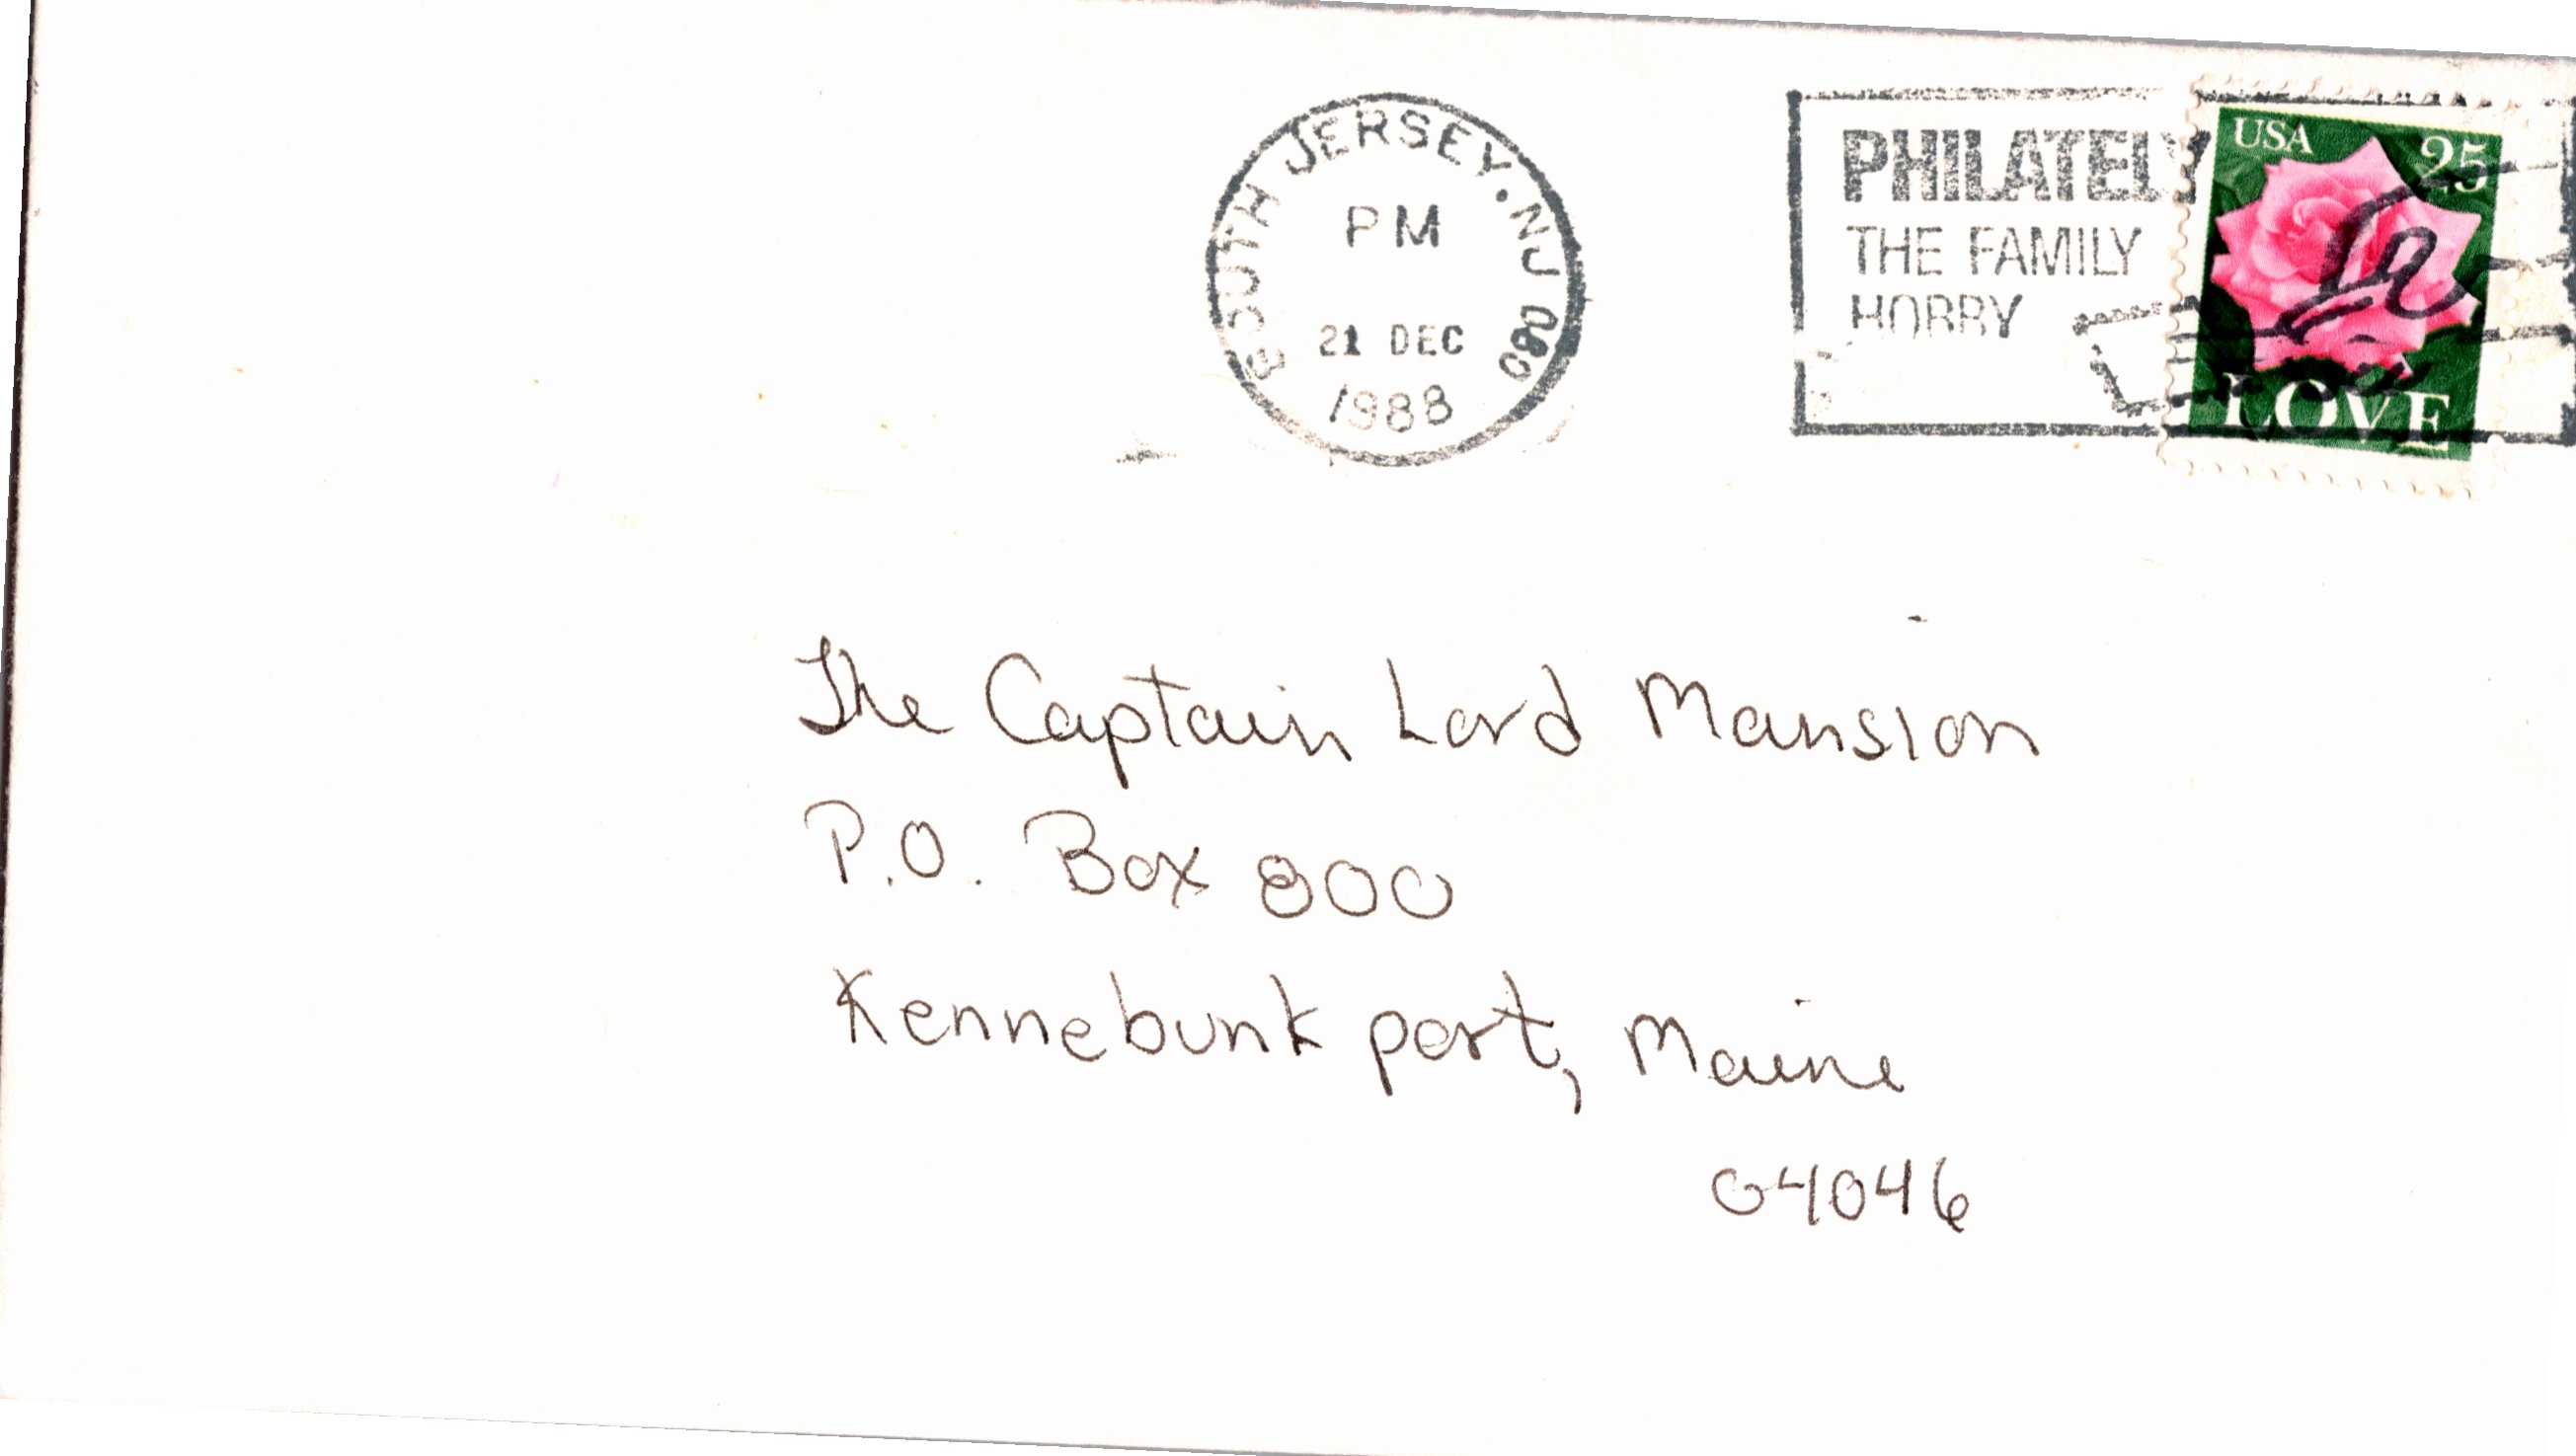 SOUTH JERSEY. NJ 080
PM
21 DEC
1988
PHILATELY
THE FAMILY
HOBBY
USA 25
LOVE
The Captain Lord Mansion
P.O. Box 800
Kennebunk port, Maine
04046